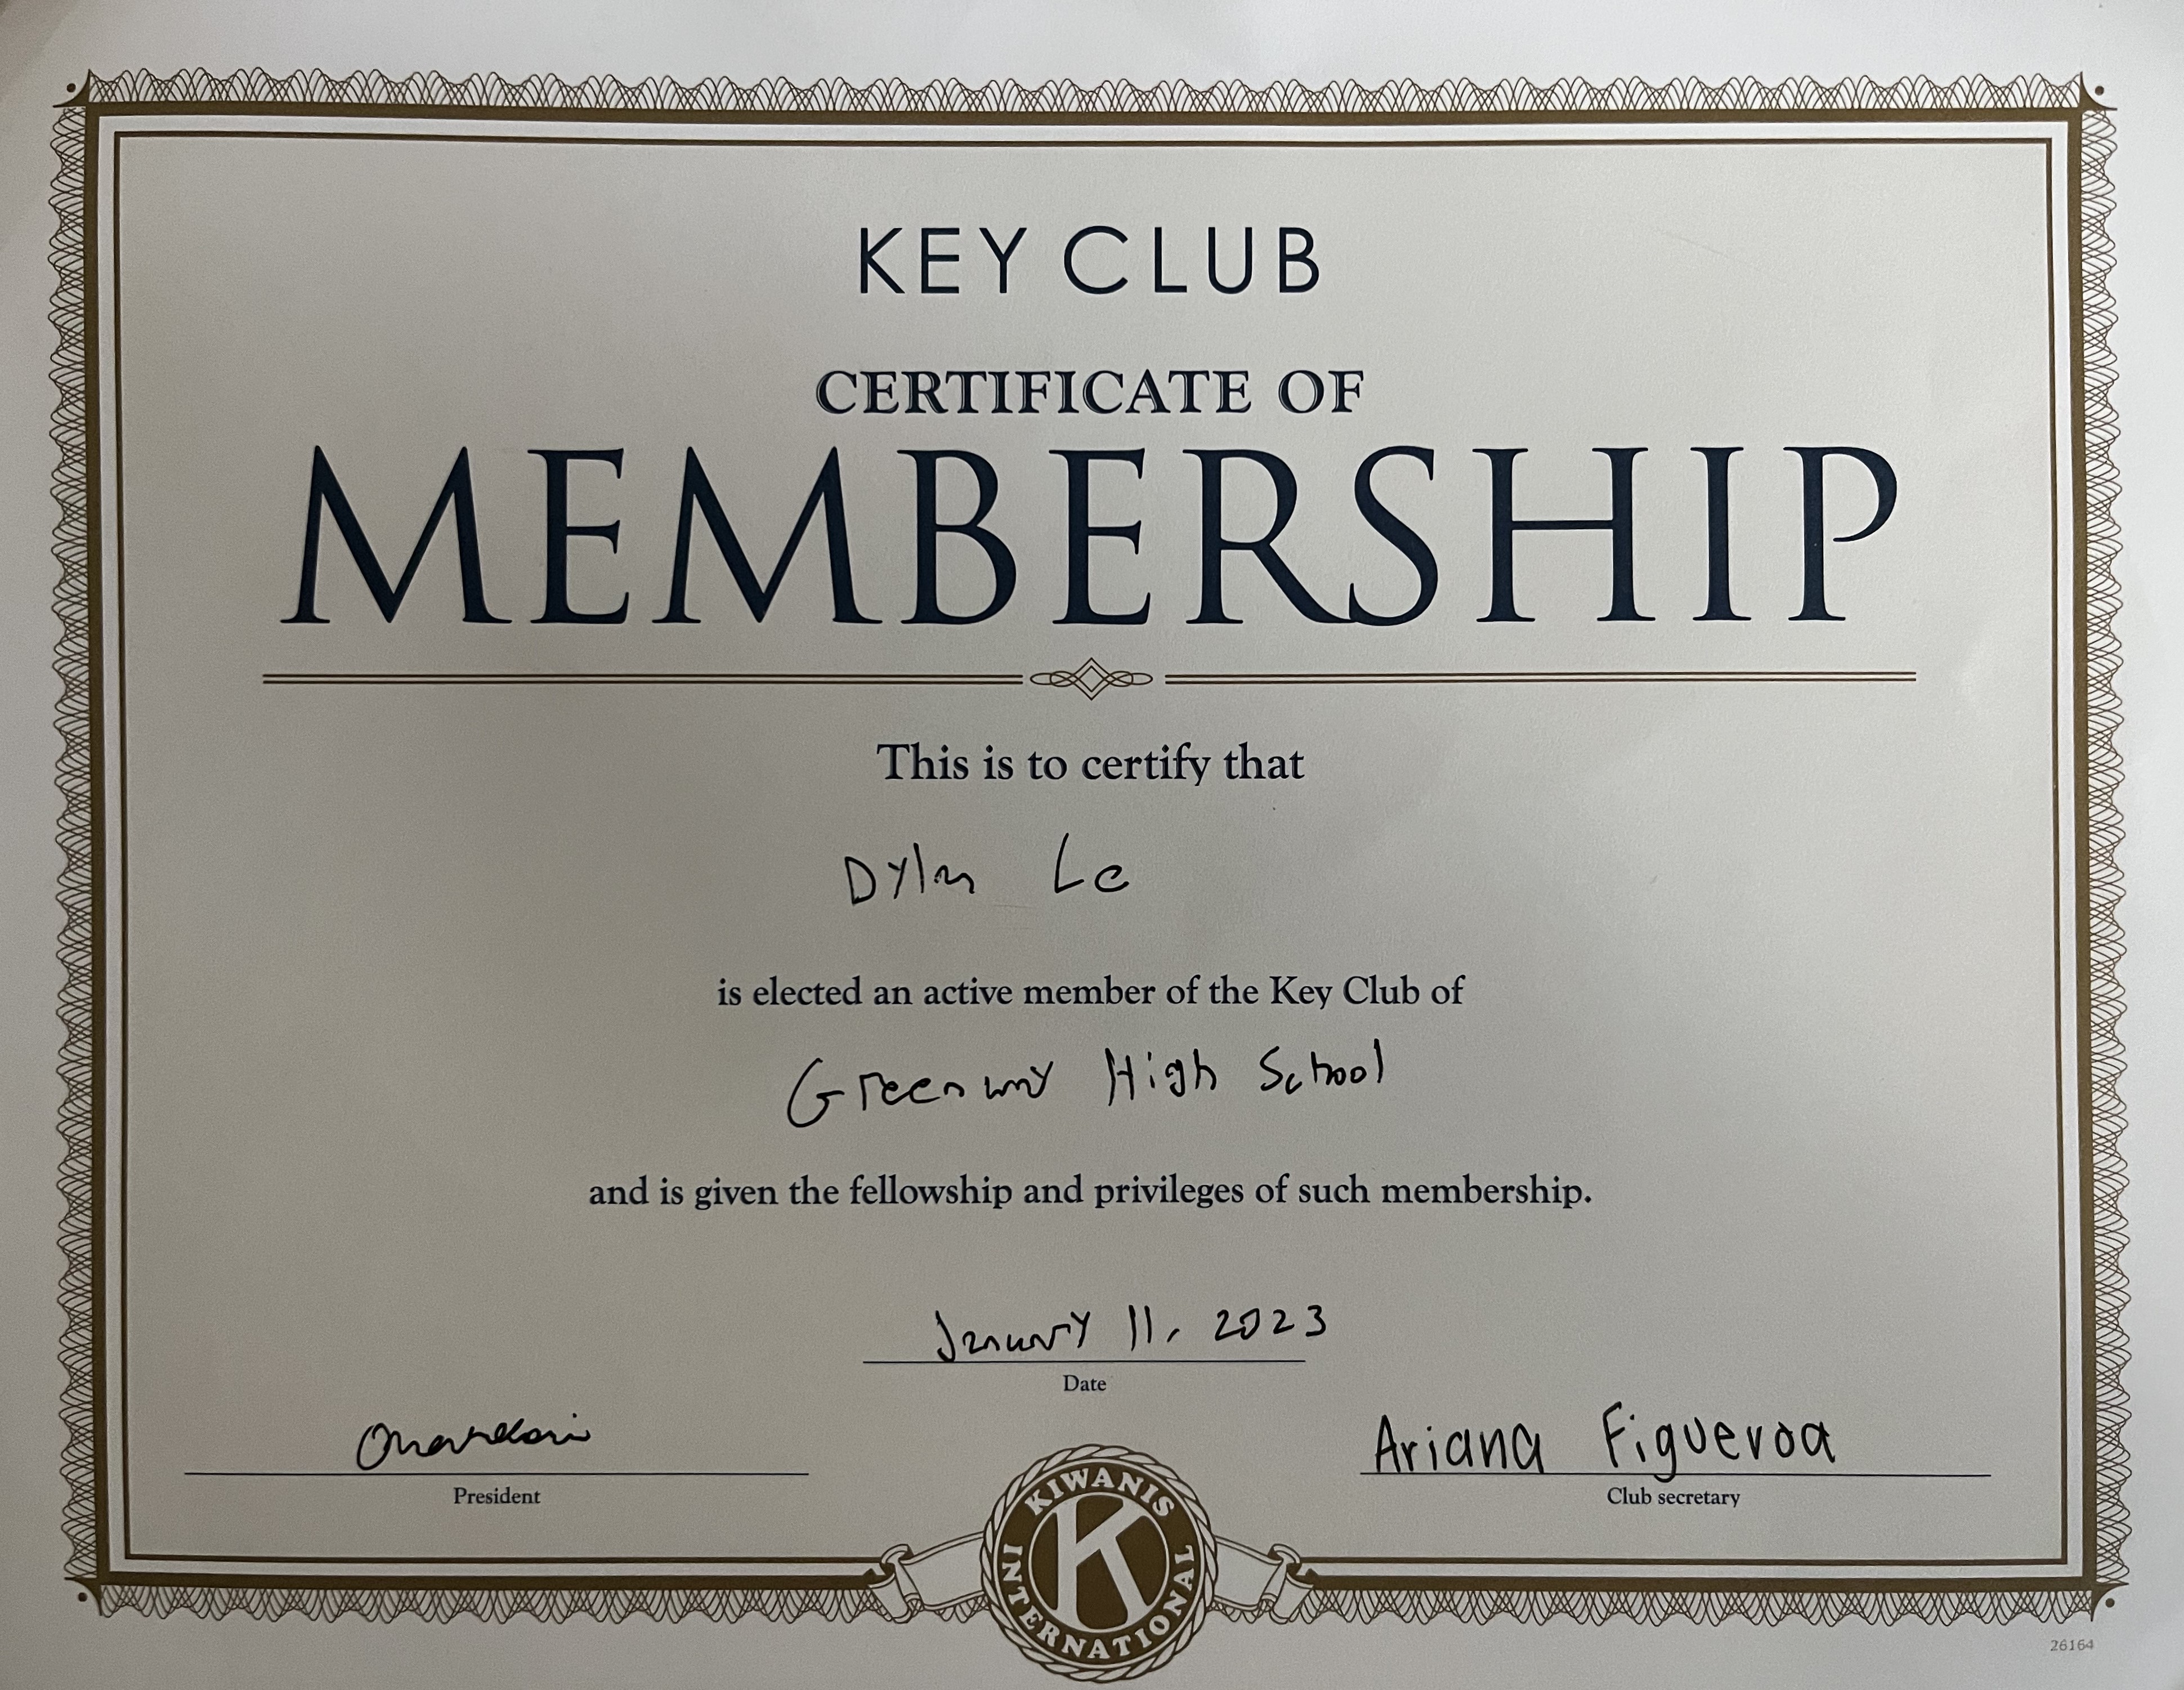 KEY CLUB
CERTIFICATE OF
MEMBERSHIP
This is to certify that
Dylan Le
is elected an active member of the Key Club of
Greenway High School
and is given the fellowship and privileges of such membership.
January 11, 2023
Date
President
Ariana Figueroa
Club secretary
KIWANIS
K
INTERNATIONAL
26164